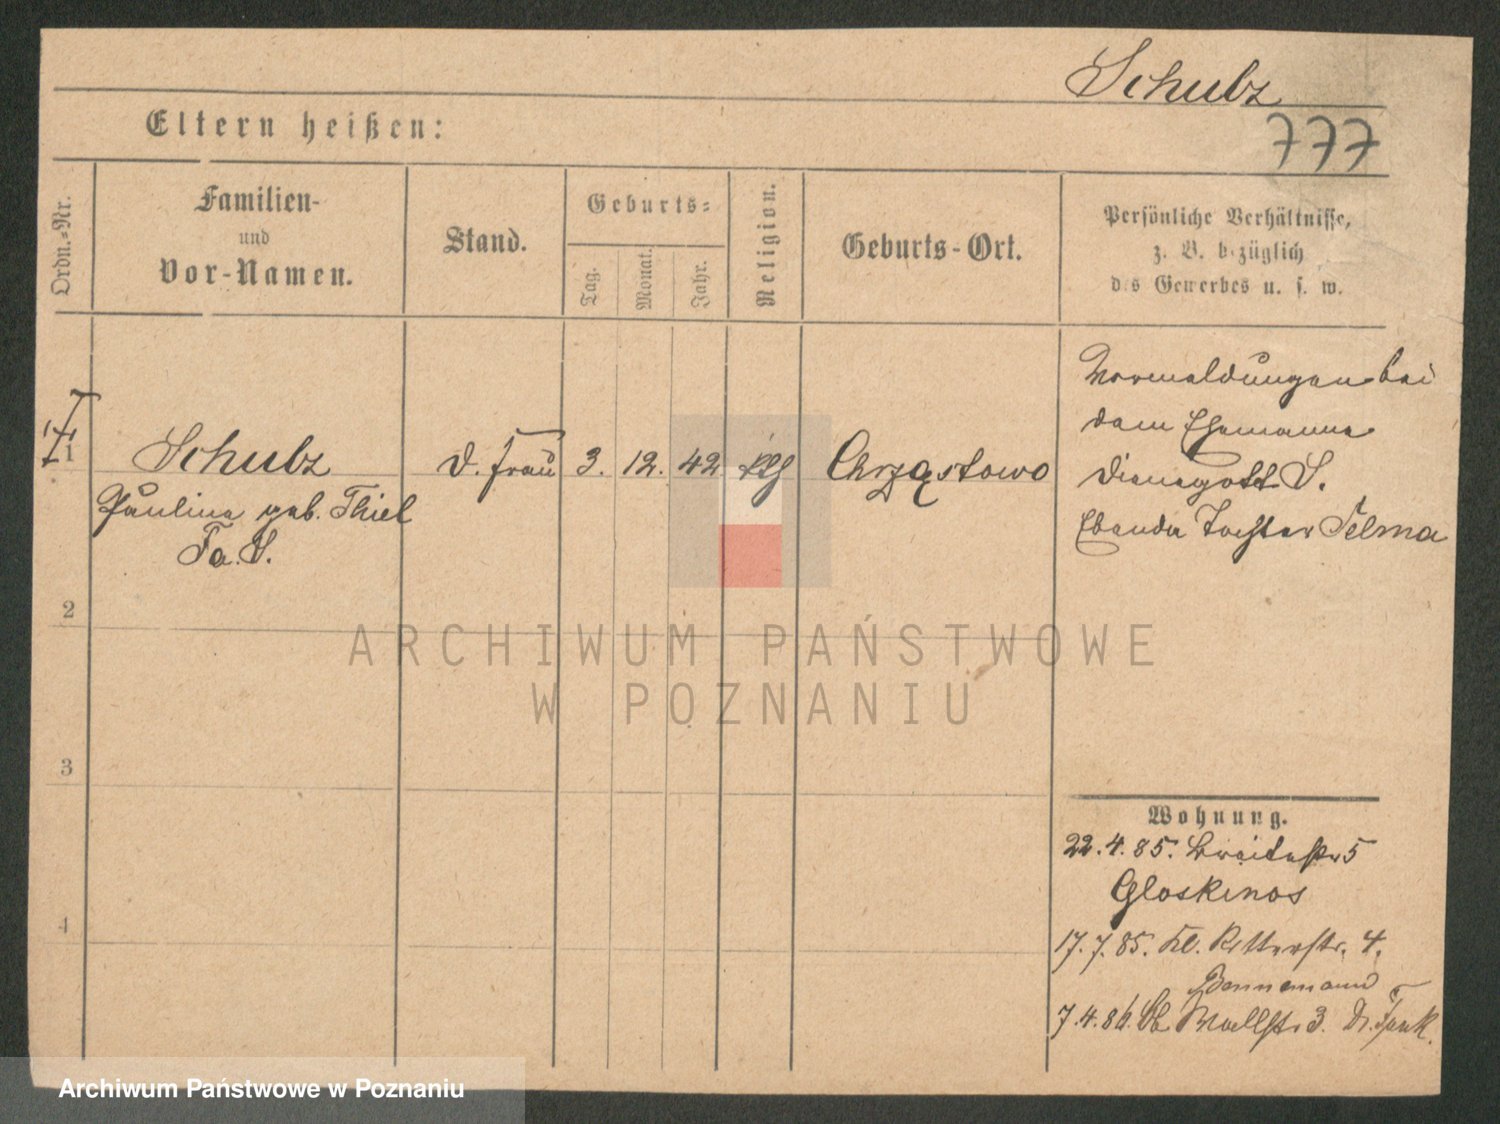 Schulz
777
Eltern heißen:
Ordn.=Nr.
Familien-
und
Vor-Namen.
Stand.
Geburts=
Tag.
Monat.
Jahr.
Religion.
Geburts-Ort.
Persönliche Verhältnisse,
z. B. bezüglich
des Gewerbes u. s. w.
1
Schulz
d. Frau
3.
12.
42
kth
Chrząstowo
Pauline geb. Thiel
Fa. S.
Vormeldungen bei
dem Ehemanne
S.
Tochter Selma
2
3
4
Wohnung.
22.4.85. Breitestr 5
Gloskinos
17.7.85. Kl. Ritterstr. 4.
Bennemann
7.4.86. Wallstr. 3.
ARCHIWUM PAŃSTWOWE
W POZNANIU
Archiwum Państwowe w Poznaniu